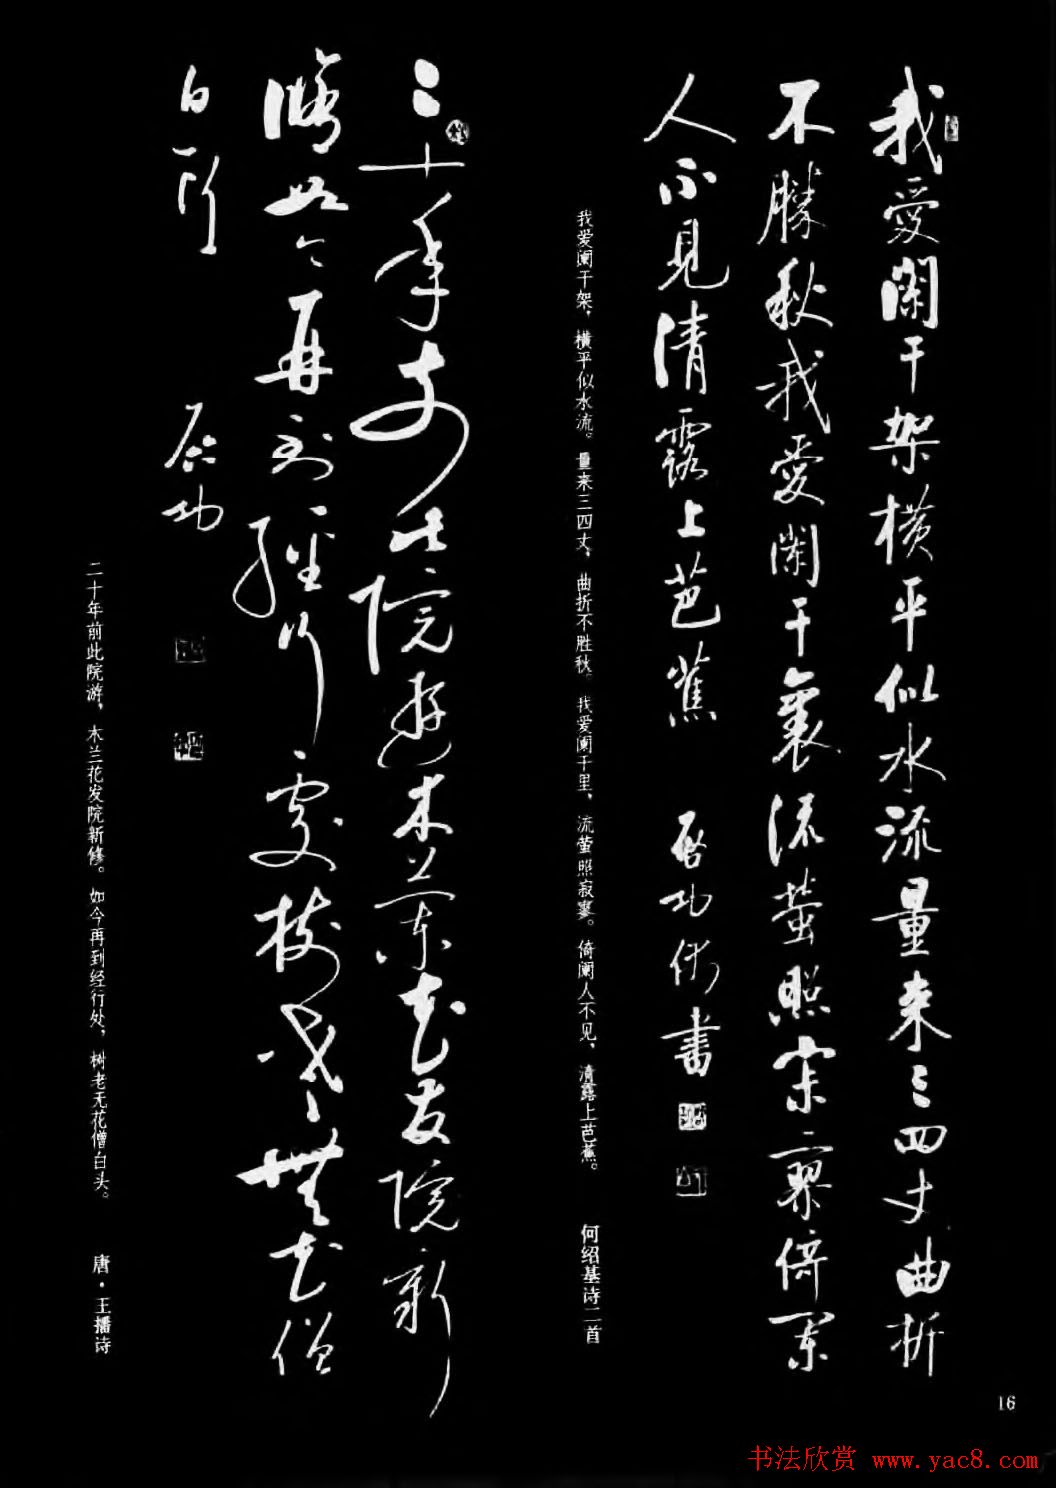 我愛闌干架橫平似水流量來三四丈曲折
不勝秋我愛闌干裏流螢照寂寥倚闌
人不見清露上芭蕉 啟功術書
我爱阑干架，横平似水流。量来三四丈，曲折不胜秋。我爱阑干里，流萤照寂寥。倚阑人不见，清露上芭蕉。 何绍基诗二首
二十年前此院遊木蘭花發院新
脩如今再到經行處樹老無花僧
白頭 启功
二十年前此院游，木兰花发院新修。如今再到经行处，树老无花僧白头。 唐·王播诗
16
书法欣赏 www.yac8.com